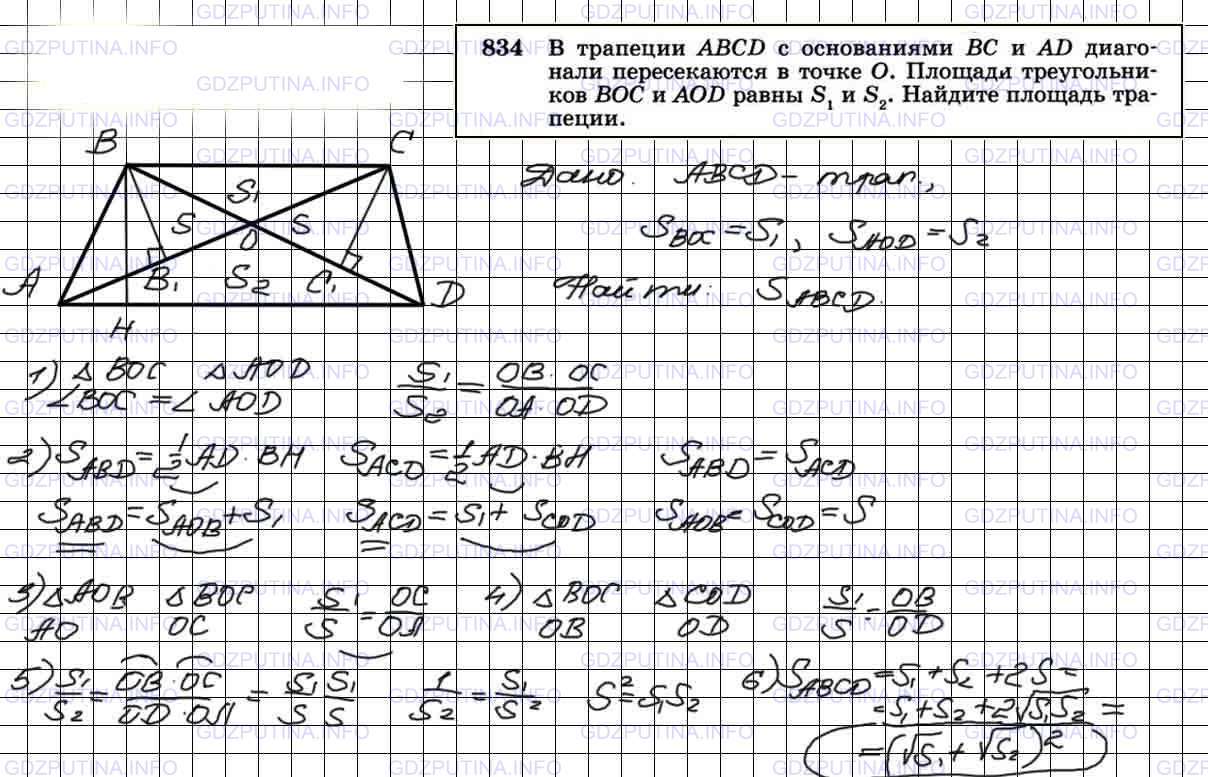 834 В трапеции ABCD с основаниями BC и AD диаго-
нали пересекаются в точке O. Площади треугольни-
ков BOC и AOD равны S₁ и S₂. Найдите площадь тра-
пеции.
B C
S₁
S S
O
A B₁ S₂ C₁ D
H
Дано. ABCD – трап.,
S_BOC = S₁, S_AOD = S₂
Найти: S_ABCD.
1) △ BOC △ AOD
∠BOC = ∠ AOD S₁/S₂ = OB · OC/OA · OD
2) S_ABD = 1/2 AD · BH S_ACD = 1/2 AD · BH S_ABD = S_ACD
S_ABD = S_AOB + S₁ S_ACD = S₁ + S_COD S_AOB = S_COD = S
3) △AOB △ BOC S₁/S = OC/OA 4) △ BOC △ COD S₁/S = OB/OD
AO OC OB OD
5) S₁/S₂ = OB · OC/OD · OA = S₁ S₁/S S 1/S₂ = S₁/S² S² = S₁S₂ 6) S_ABCD = S₁ + S₂ + 2S =
= S₁ + S₂ + 2√S₁S₂ =
= (√S₁ + √S₂)²
GDZPUTINA.INFO